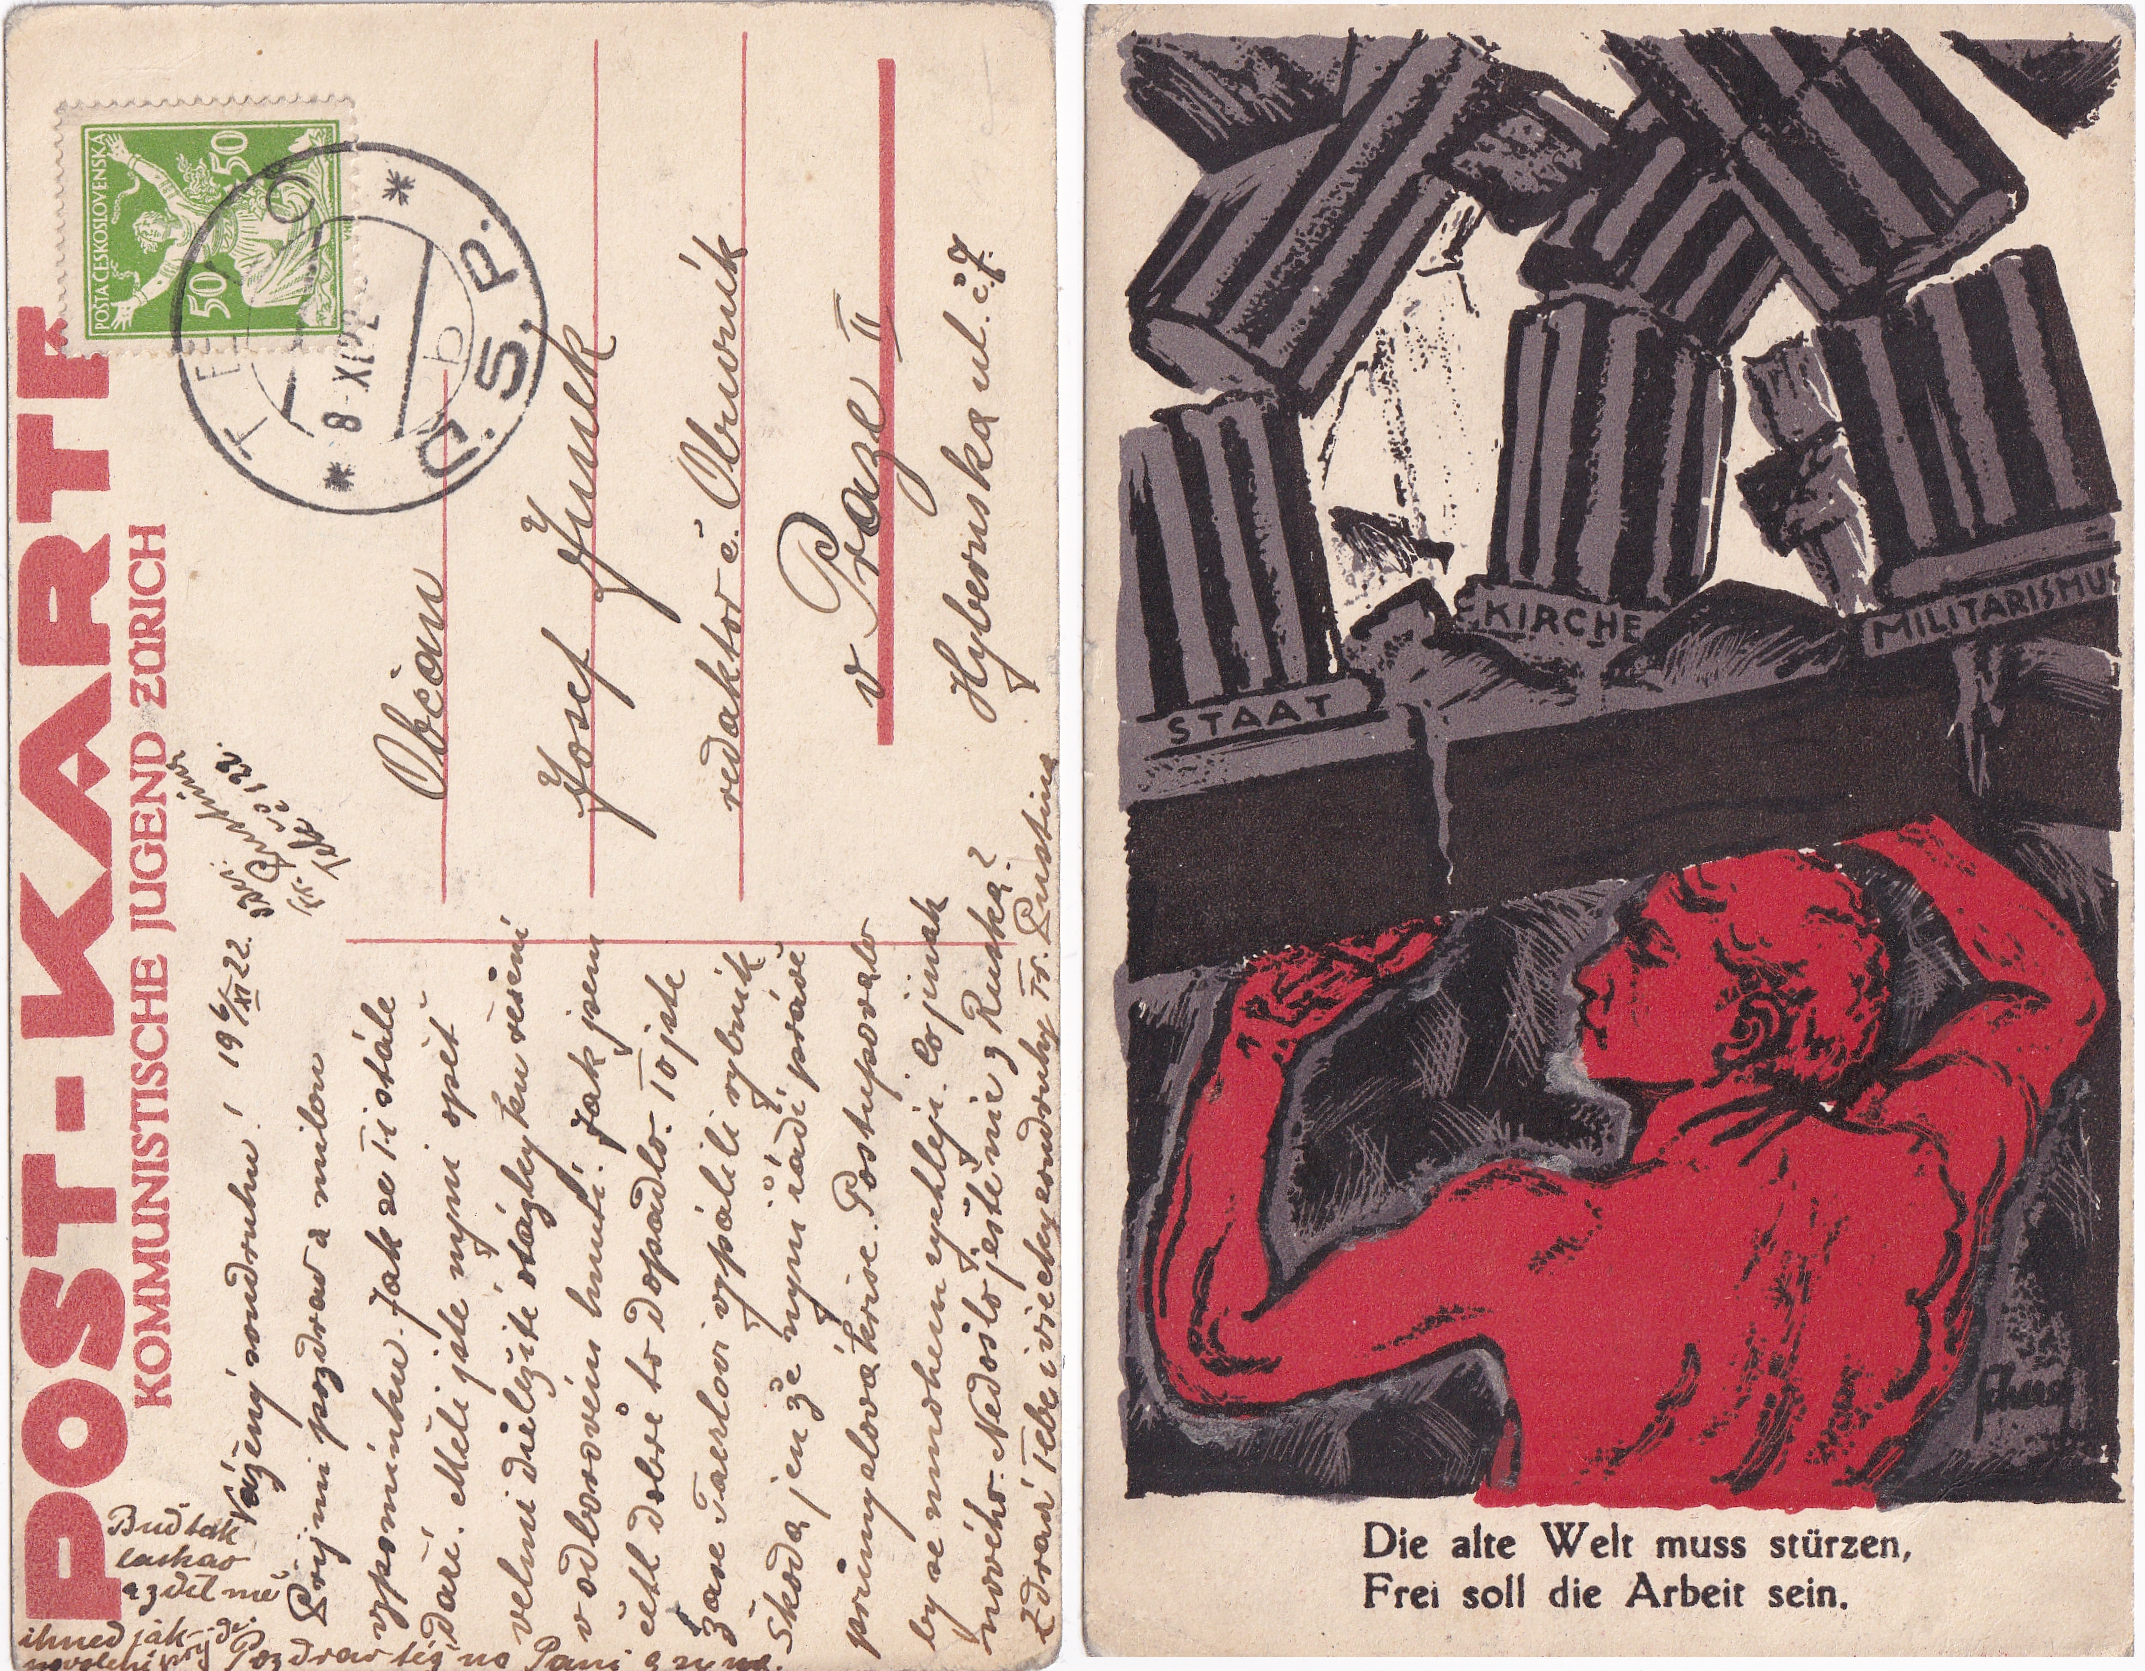 POST-KARTE
KOMMUNISTISCHE JUGEND ZÜRICH
POŠTA ČESKOSLOVENSKÁ
50 50
8-XI 22
Č.S.P.
b
Vážený soudruhu! 19 6/XI 22.
Přijmi pozdrav a milou
vzpomínku. Jak se Ti stále
daří. Měli jste nyní opět
velmi důležité otázky ku řešení
v odborovém hnutí. Jak jsem
četl dobře to dopadlo. To jste
zase
vypálili rybník
Škoda jen že nyní řádí právě
průmyslová krise. Postupovalo
by se mnohem rychleji. Co jinak
nového. Nedošlo ještě nic z Ruska?
Zdraví Tebe i všechny soudruhy Fr. Pustina
Buď tak
laskav
a zděl mě
ihned jak
Pozdrav též na Paní a syna.
Občan
Josef Junek
redaktor č. Obuvník
v Praze II
Hybernska ul. č. 7.
STAAT
KIRCHE
MILITARISMUS
Die alte Welt muss stürzen,
Frei soll die Arbeit sein.